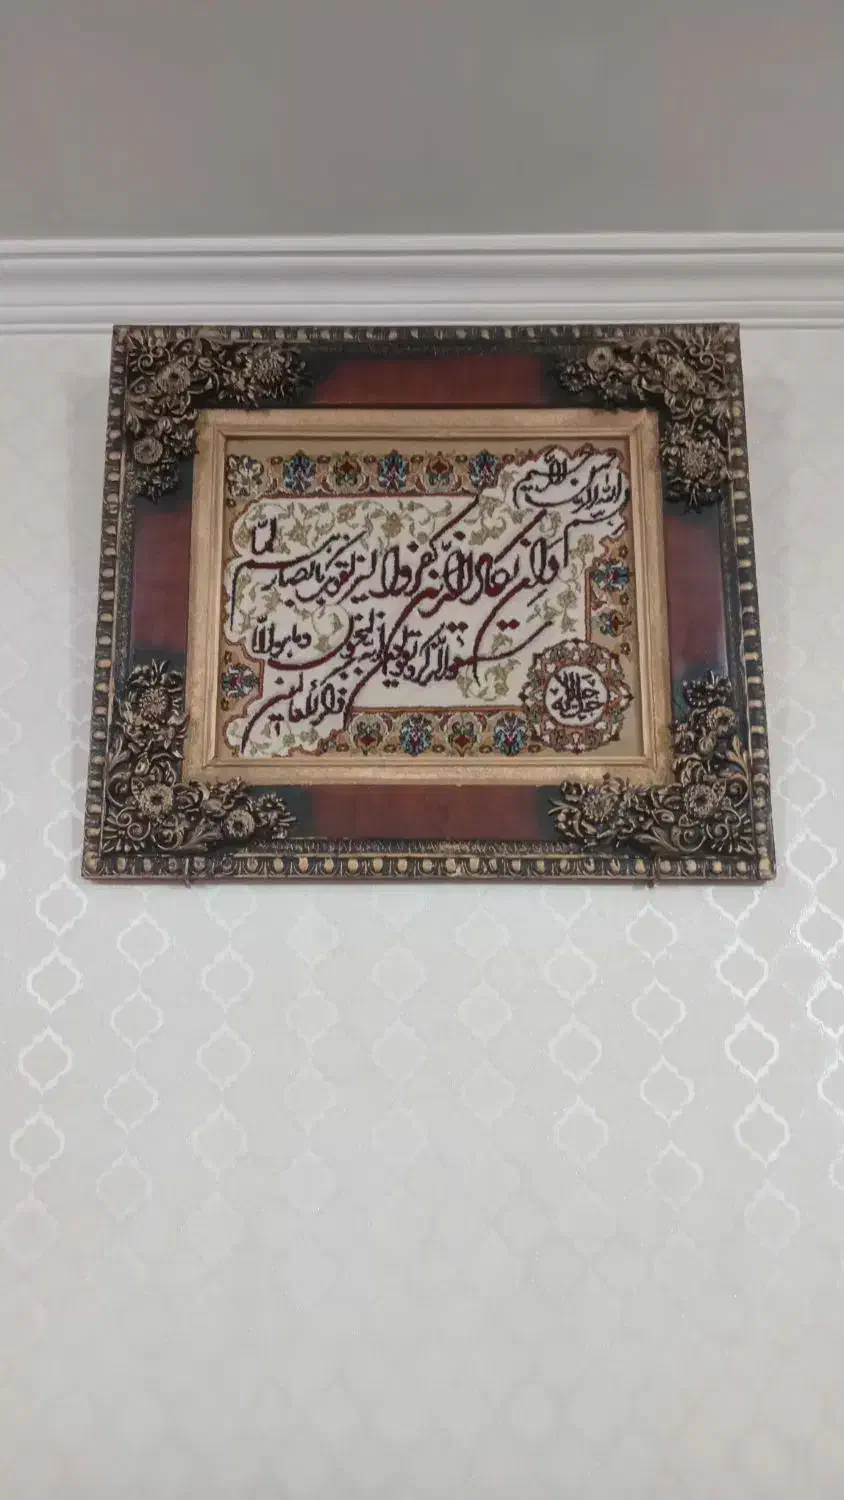 بسم الله الرحمن الرحيم
وان يكاد الذين كفروا ليزلقونك بابصارهم لما
سمعوا الذكر ويقولون انه لمجنون وما هو الا
ذكر للعالمين
جل جلاله